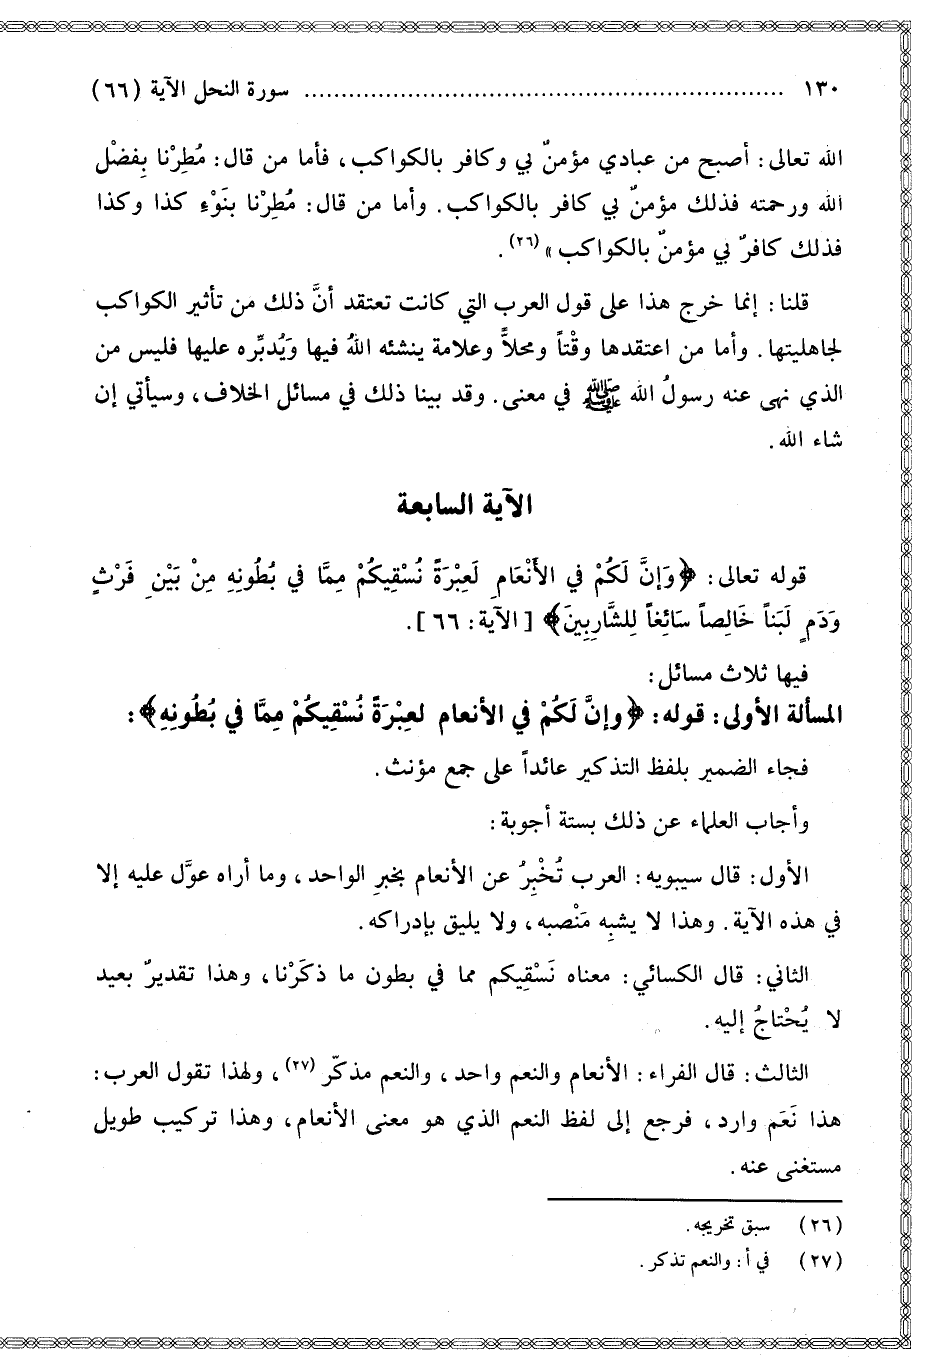 ١٣٠ ................................................................ سورة النحل الآية (٦٦)
الله تعالى: أصبح من عبادي مؤمنٌ بي وكافر بالكواكب، فأما من قال: مُطِرْنا بِفضْل
الله ورحمته فذلك مؤمنٌ بي كافر بالكواكب. وأما من قال: مُطِرْنا بنَوْءِ كذا وكذا
فذلك كافرٌ بي مؤمنٌ بالكواكب» (٢٦).
قلنا: إنما خرج هذا على قول العرب التي كانت تعتقد أنَّ ذلك من تأثير الكواكب
لجاهليتها. وأما من اعتقدها وقْتاً ومحلاًّ وعلامة ينشئه اللهُ فيها وَيُدبِّره عليها فليس من
الذي نهى عنه رسولُ الله ﷺ في معنى. وقد بينا ذلك في مسائل الخلاف، وسيأتي إن
شاء الله.
الآية السابعة
قوله تعالى: ﴿وَإنَّ لَكُمْ في الأَنْعَامِ لَعِبْرَةً نُسْقِيكُمْ مِمَّا في بُطُونِهِ مِنْ بَيْنِ فَرْثٍ
وَدَمٍ لَبَناً خَالِصاً سَائِغاً لِلشَّارِبِينَ﴾ [الآية: ٦٦].
فيها ثلاث مسائل:
المسألة الأولى: قوله: ﴿وإنَّ لَكُمْ في الأنعام لعِبْرَةً نُسْقِيكُمْ مِمَّا في بُطُونِهِ﴾:
فجاء الضمير بلفظ التذكير عائداً على جمع مؤنث.
وأجاب العلماء عن ذلك بستة أجوبة:
الأول: قال سيبويه: العرب تُخْبِرُ عن الأنعام بخبرِ الواحد، وما أراه عوَّل عليه إلا
في هذه الآية. وهذا لا يشبِه مَنْصبه، ولا يليق بإدراكه.
الثاني: قال الكسائي: معناه نَسْقِيكم مما في بطون ما ذكَرْنا، وهذا تقديرٌ بعيد
لا يُحْتاجُ إليه.
الثالث: قال الفراء: الأنعام والنعم واحد، والنعم مذكّر (٢٧)، ولهذا تقول العرب:
هذا نَعَم وارد، فرجع إلى لفظ النعم الذي هو معنى الأنعام، وهذا تركيب طويل
مستغنى عنه.
(٢٦) سبق تخريجه.
(٢٧) في أ: والنعم تذكر.